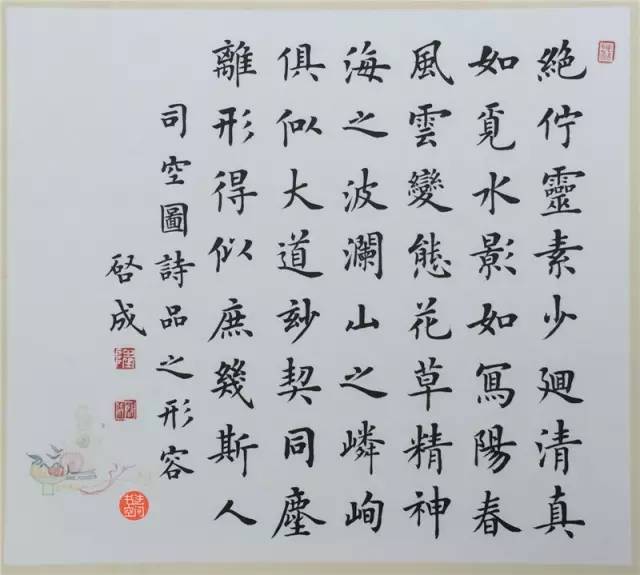 絕佇靈素少廻清真
如覓水影如寫陽春
風雲變態花草精神
海之波瀾山之嶙峋
俱似大道玅契同塵
離形得似庶幾斯人
司空圖詩品之形容
啓成